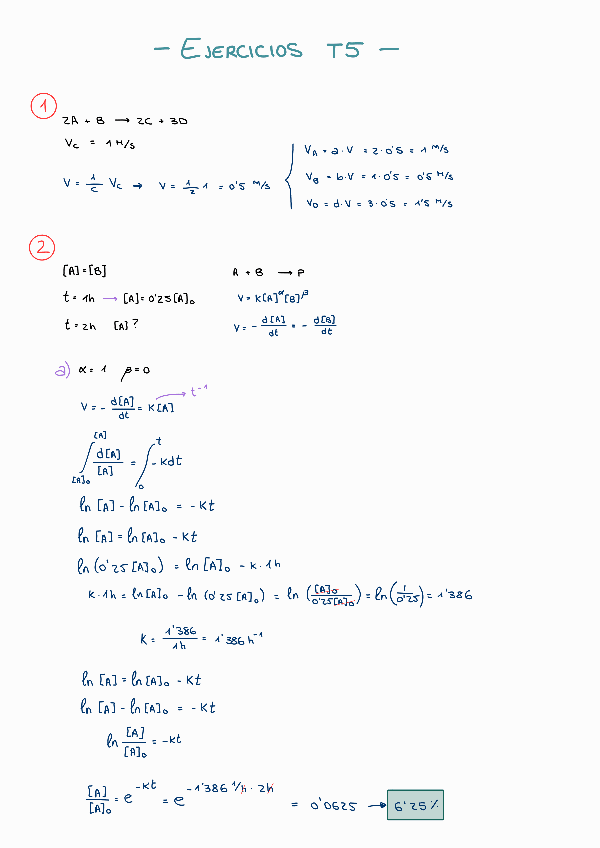 - EJERCICIOS T5 -
1
2A + B → 2C + 3D
Vc = 1 M/s
V = 1/c Vc → V = 1/2 1 = 0'5 M/s
VA = a·V = 2·0'5 = 1 M/s
VB = b·V = 1·0'5 = 0'5 M/s
VD = d·V = 3·0'5 = 1'5 M/s
2
[A]=[B]
t = 1h → [A]=0'25[A]₀
t = 2h [A]?
A + B → P
V = K[A]^α[B]^β
V = - d[A]/dt = - d[B]/dt
a) α = 1 β = 0
V = - d[A]/dt = K[A] → t⁻¹
∫_[A]₀^[A] d[A]/[A] = ∫_0^t -Kdt
ln [A] - ln [A]₀ = -Kt
ln [A] = ln [A]₀ - Kt
ln (0'25 [A]₀) = ln [A]₀ - K·1h
K·1h = ln [A]₀ - ln (0'25 [A]₀) = ln ([A]₀/0'25[A]₀) = ln (1/0'25) = 1'386
K = 1'386/1h = 1'386 h⁻¹
ln [A] = ln [A]₀ - Kt
ln [A] - ln [A]₀ = -Kt
ln [A]/[A]₀ = -Kt
[A]/[A]₀ = e^-Kt = e^-1'386 1/h · 2h = 0'0625 → 6'25%